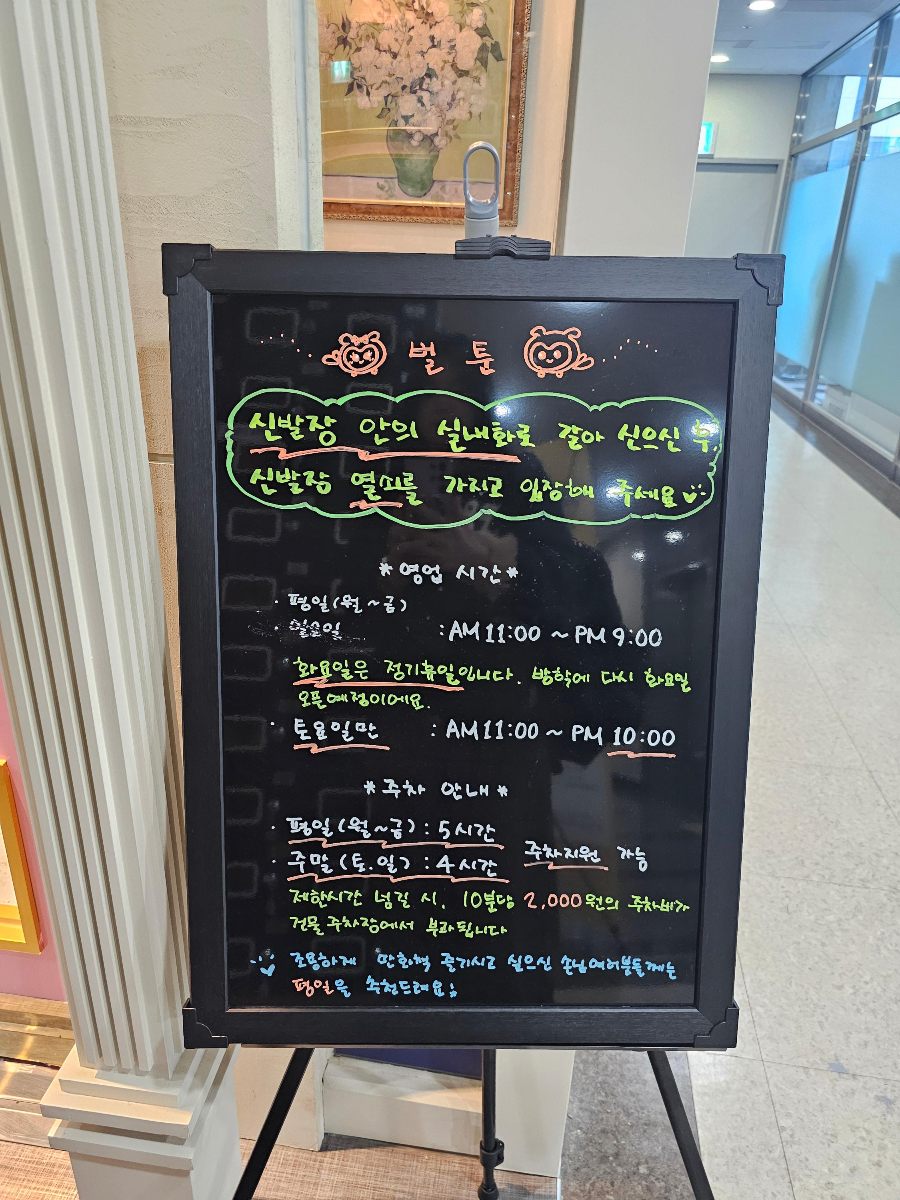 벌툰
신발장 안의 실내화로 갈아 신으신 후,
신발장 열쇠를 가지고 입장해 주세요
*영업 시간*
· 평일(월~금)
· 일요일 : AM 11:00 ~ PM 9:00
화요일은 정기휴일입니다. 방학에 다시 화요일
오픈예정이에요.
· 토요일만 : AM 11:00 ~ PM 10:00
*주차 안내*
· 평일(월~금) : 5시간
· 주말(토.일) : 4시간 주차지원 가능
제한시간 넘길 시, 10분당 2,000원의 주차비가
건물 주차장에서 부과됩니다
조용하게 만화책 즐기시고 싶으신 손님여러분들께는
평일을 추천드려요;